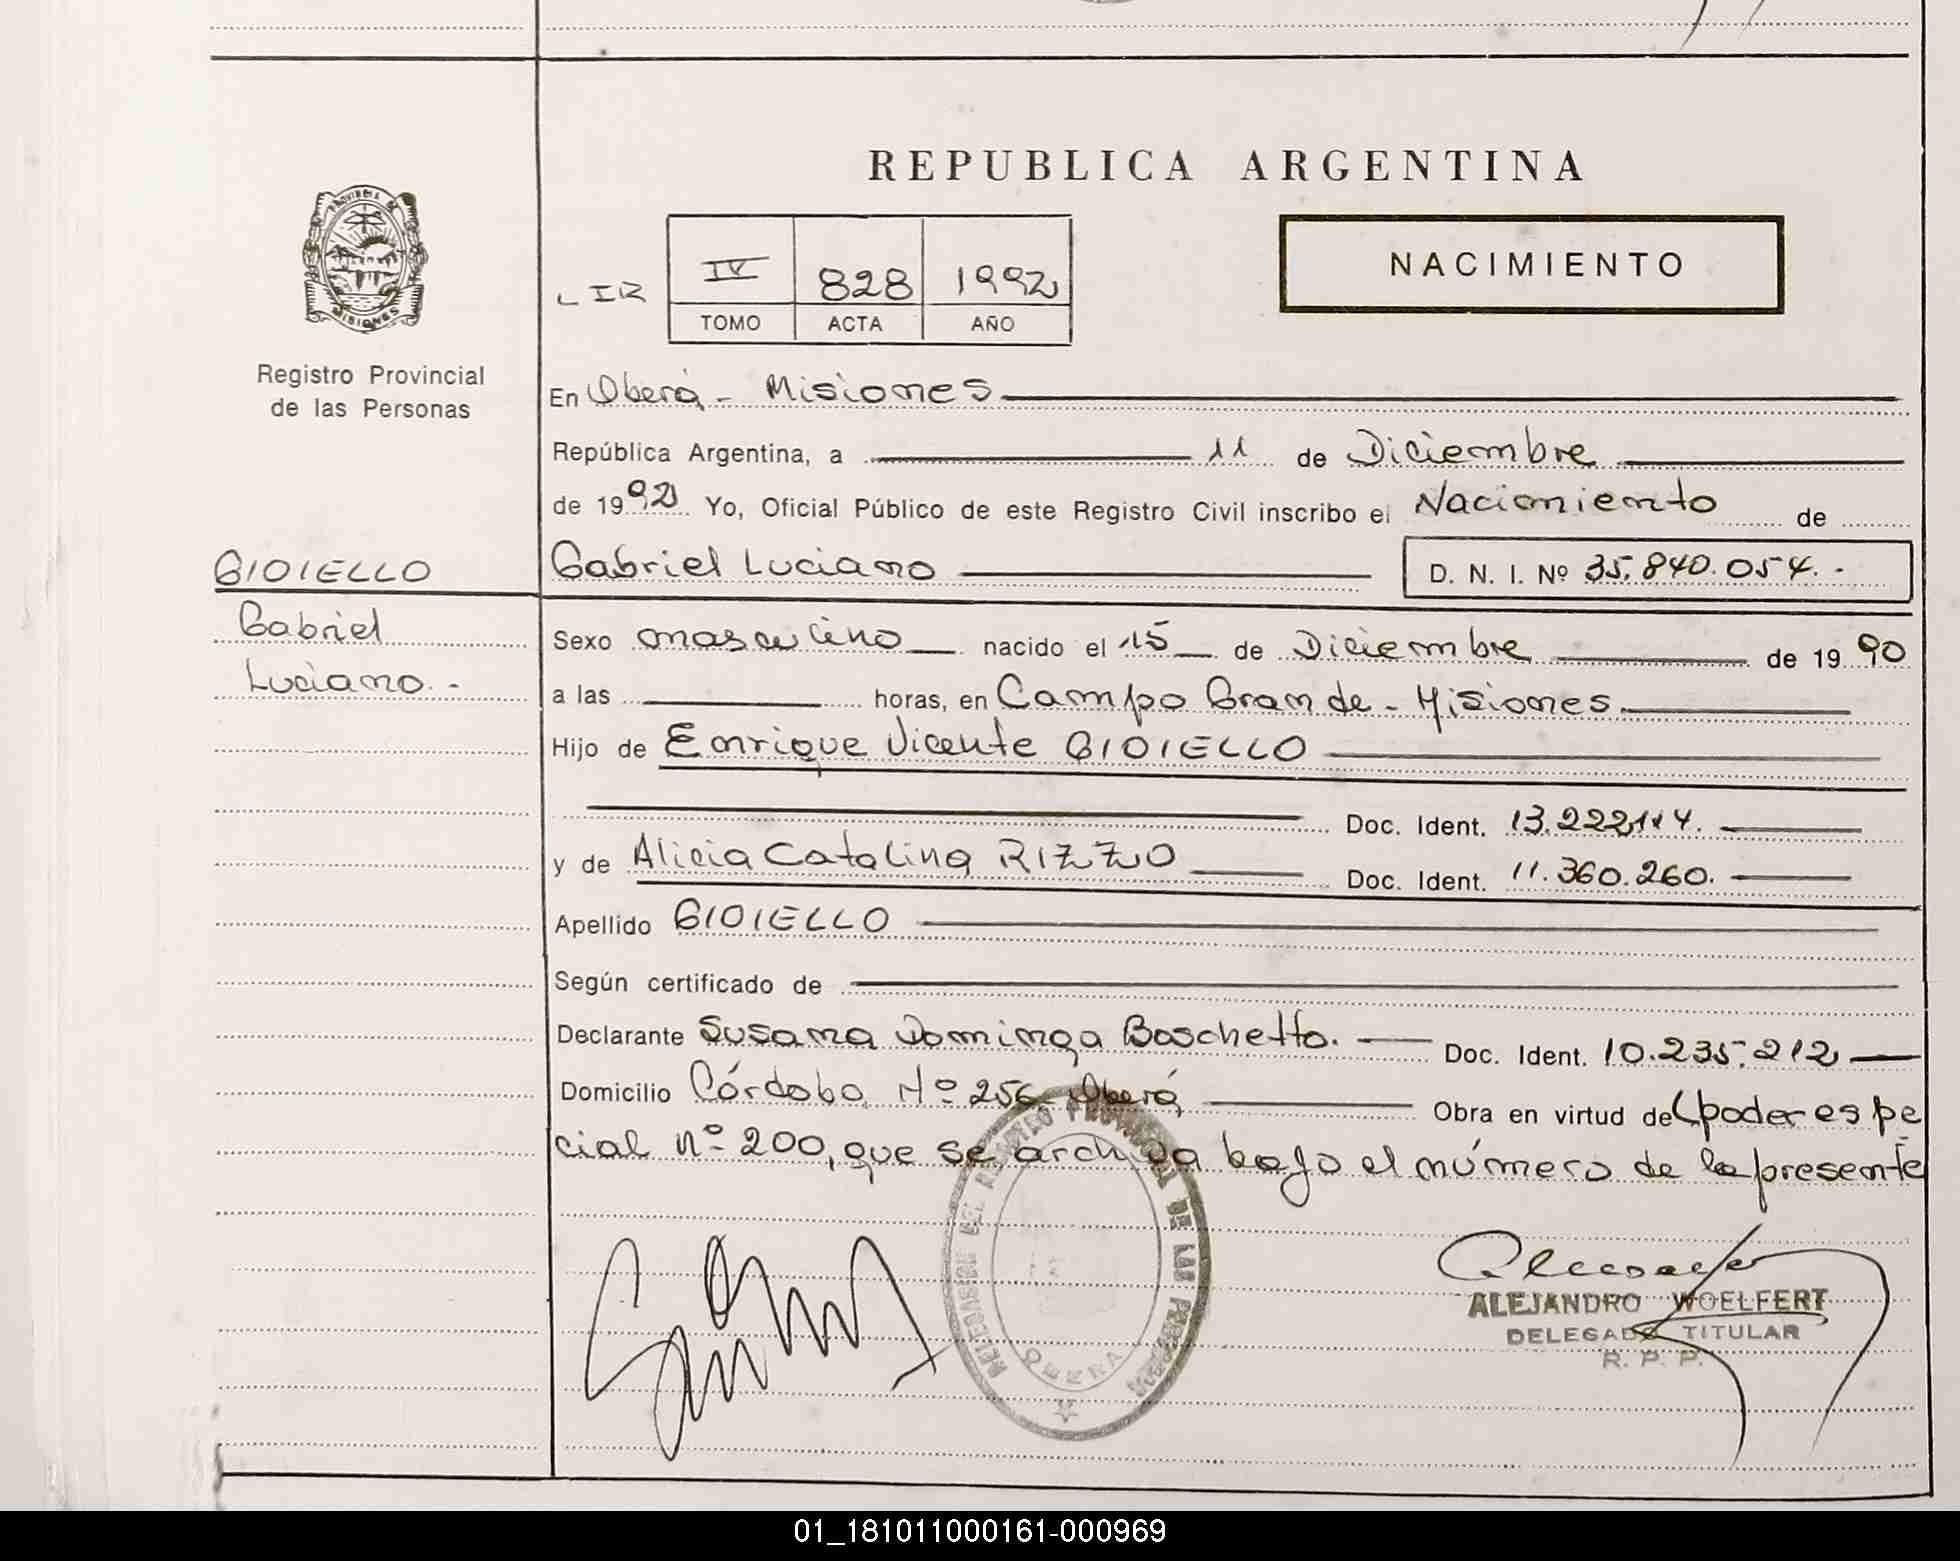 REPUBLICA ARGENTINA
NACIMIENTO
LIR
IV 828 1992
TOMO ACTA AÑO
PROVINCIA DE
MISIONES
Registro Provincial
de las Personas
En Oberá - Misiones
República Argentina, a 11 de Diciembre
de 1992 Yo, Oficial Público de este Registro Civil inscribo el Nacimiento de
GIOIELLO
Gabriel
Luciano.-
Gabriel Luciano D. N. I. Nº 35.840.054.-
Sexo masculino nacido el 15 de Diciembre de 1990
a las horas, en Campo Grande - Misiones
Hijo de Enrique Vicente GIOIELLO
Doc. Ident. 13.222.114.
y de Alicia Catalina RIZZO Doc. Ident. 11.360.260.
Apellido GIOIELLO
Según certificado de
Declarante Susana Dominga Boschetto. Doc. Ident. 10.235.212
Domicilio Córdoba Nº 256 Oberá Obra en virtud del poder espe
cial nº 200, que se archiva bajo el número de la presente
DELEGACION DEL REGISTRO PROVINCIAL DE LAS PERSONAS
OBERA
ALEJANDRO WOELFERT
DELEGADO TITULAR
R. P. P.
01_181011000161-000969